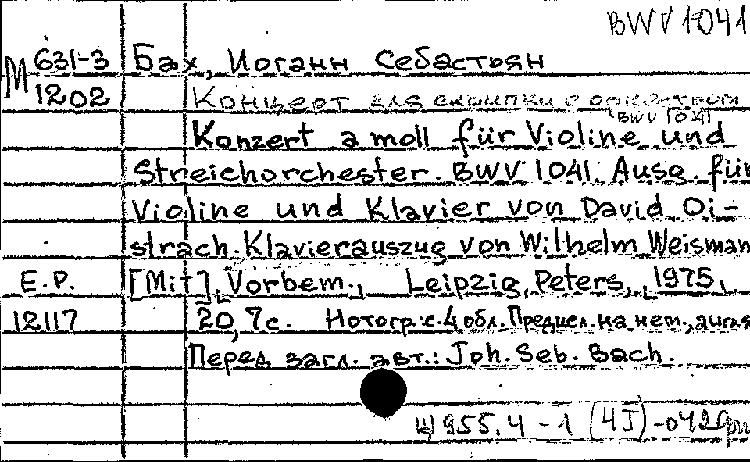 BWV 1041
М 631-3 Бах, Иоганн Себастьян
1202 Концерт для скрипки с оркестром
BWV 1041
Konzert a moll für Violine und
Streichorchester. BWV 1041. Ausg. für
Violine und Klavier von David Oi-
strach. Klavierauszug von Wilhelm Weisman
E.P. [Mit] Vorbem., Leipzig, Peters, 1975,
12117 20,7 с. Нотогр. с. 4 обл. Предисл. на нем., англ.
Перед загл. авт.: Joh. Seb. Bach.
Ш 955.4-1 (4J)-042